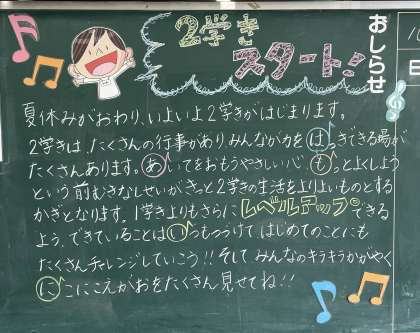 2学き
スタート!
おしらせ
夏休みがおわり、いよいよ2学きがはじまります。
2学きは、たくさんの行事があり、みんなが力をはっきできる場が
たくさんあります。あいてをおもうやさしい心、もっとよくしよう
という前むきなしせいが、きっと2学きの生活をよりよいものとする
かぎとなります。1学きよりもさらにレベルアップできる
よう、できていることはいつもつづけて、はじめてのことにも
たくさんチャレンジしていこう!!そして みんなのキラキラかがやく
にこにこえがおをたくさん見せてね!!